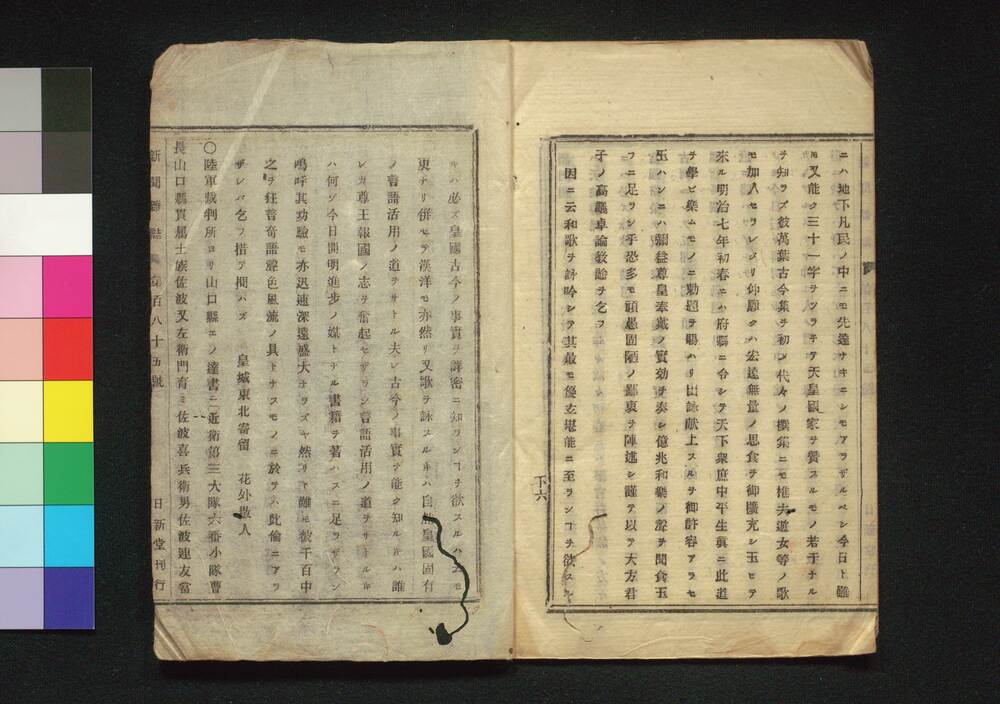 ニハ地下凡民ノ中ニモ先達ナキニシモアラザルベシ今日ト雖
モ又能ク三十一字ヲツラ子テ天皇國家ヲ賛スルモノ若干ナル
ヲ知ラズ彼萬葉古今集ヲ初メ代々ノ撰集ニモ樵夫遊女等ノ歌
モ加入セリレメリ仰願クハ宏遠無量ノ思食ヲ御擴充シ玉ヒテ
來ル明治七年初春ニハ府縣ニ令シテ天下衆庶中平生眞ニ此道
ヲ學ビ樂ムモノニ勅題ヲ賜ハリ出詠献上スルヲ御許容アラセ
玉ハンニハ爾益尊皇奉戴ノ實効ヲ奏シ億兆和樂ノ聲ヲ聞食玉
フニ足ラン乎恐多モ頑愚固陋ノ鄙衷ヲ陳述シ謹テ以テ大方君
子ノ高議卓論教諭ヲ乞フ
因ニ云和歌ヲ詠吟シテ其最モ優玄堪能ニ至ランコヲ欲スル
下六
ルハ必ズ皇國古今ノ事實ヲ詳密ニ知ランコヲ欲スルハ
更ナリ併セテ漢洋モ亦然リ又歌ヲ詠スルキハ自然皇國固有
ノ言語活用ノ道ヲサトル夫レ古今ノ事實ヲ能ク知ルキハ誰
レカ尊王報國ノ志ヲ奮起セザラン言語活用ノ道ヲサトルキ
ハ何ソ今日開明進歩ノ媒トナル書籍ヲ著ハスニ足ラザラン
嗚呼其功驗モ亦迅速深遠盛大ナラズヤ然リト雖𪜈彼千百中
之ヲ狂言奇語聲色風流ノ具トナスモノニ於テハ此倫ニアラ
ザレバ乞フ措テ問ハズ
皇城東北寄留 花外散人
〇陸軍裁判所ヨリ山口縣エノ達書ニ近衛第三大隊六番小隊曹
長山口縣貫屬士族佐波又左衛門育ミ佐波喜兵衛男佐波連友當
新聞雜誌 第百八十五號 日新堂刊行